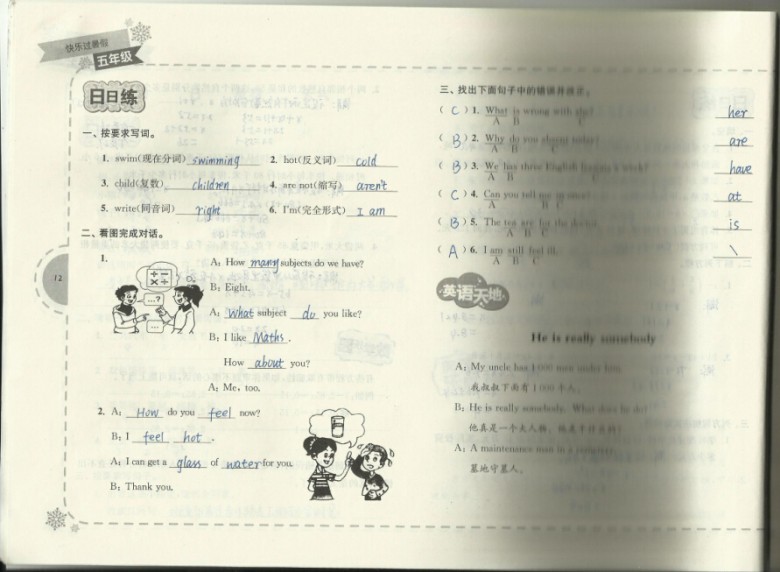 快乐过暑假
五年级
日日练
一、按要求写词。
1. swim(现在分词) swimming 2. hot(反义词) cold
3. child(复数) children 4. are not(缩写) aren't
5. write(同音词) right 6. I'm(完全形式) I am
二、看图完成对话。
1. A: How many subjects do we have?
B: Eight.
A: What subject do you like?
B: I like Maths.
How about you?
A: Me, too.
2. A: How do you feel now?
B: I feel hot.
A: I can get a glass of water for you.
B: Thank you.
12
三、找出下面句子中的错误并改正。
( C ) 1. What is wrong with she? her
A B C
( B ) 2. Why do you today? are
A B
( B ) 3. We has three English a week? have
A B C
( C ) 4. Can you tell me at
A B C
( B ) 5. The tea are for the is
A B C
( A ) 6. I am still feel ill. \
A B C
英语天地
He is really somebody
A: My uncle has 1000 men under him.
我叔叔下面有1000个人。
B: He is really somebody. What does he do?
他真是一个大人物，
A: A maintenance man in a cemetery.
墓地守墓人。